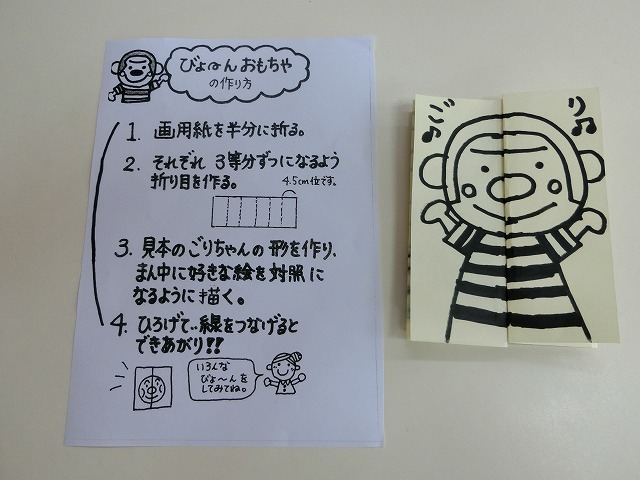 びょ〜ん おもちゃ
の作り方
1. 画用紙を半分に折る。
2. それぞれ 3等分ずつになるよう
折り目を作る。
4.5cm位です。
3. 見本のごりちゃんの 形を作り、
まん中に好きな絵を対照に
なるように描く。
4. ひろげて‥線をつなげると
できあがり!!
いろんな
びょ〜んを
してみてね。
ご
り